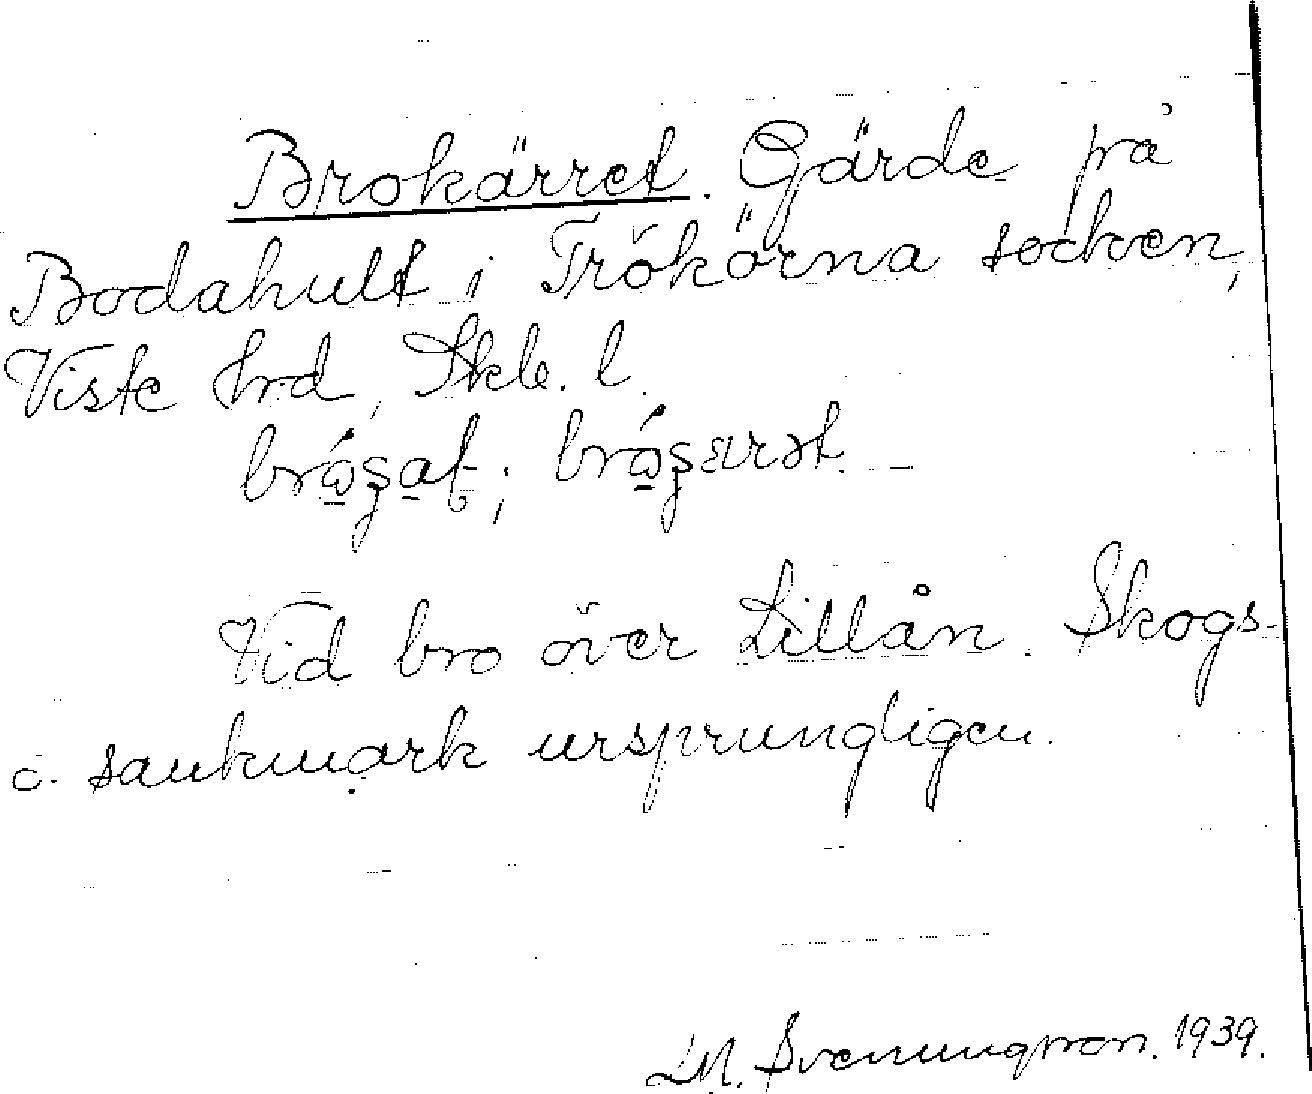 Brokärret. Gärde på
Bodahult i Trökörna socken,
Viste hrd, Skb. l.
Vid bro över Lillån. Skogs-
o. sankmark ursprungligen.
M. Svenungsson. 1939.